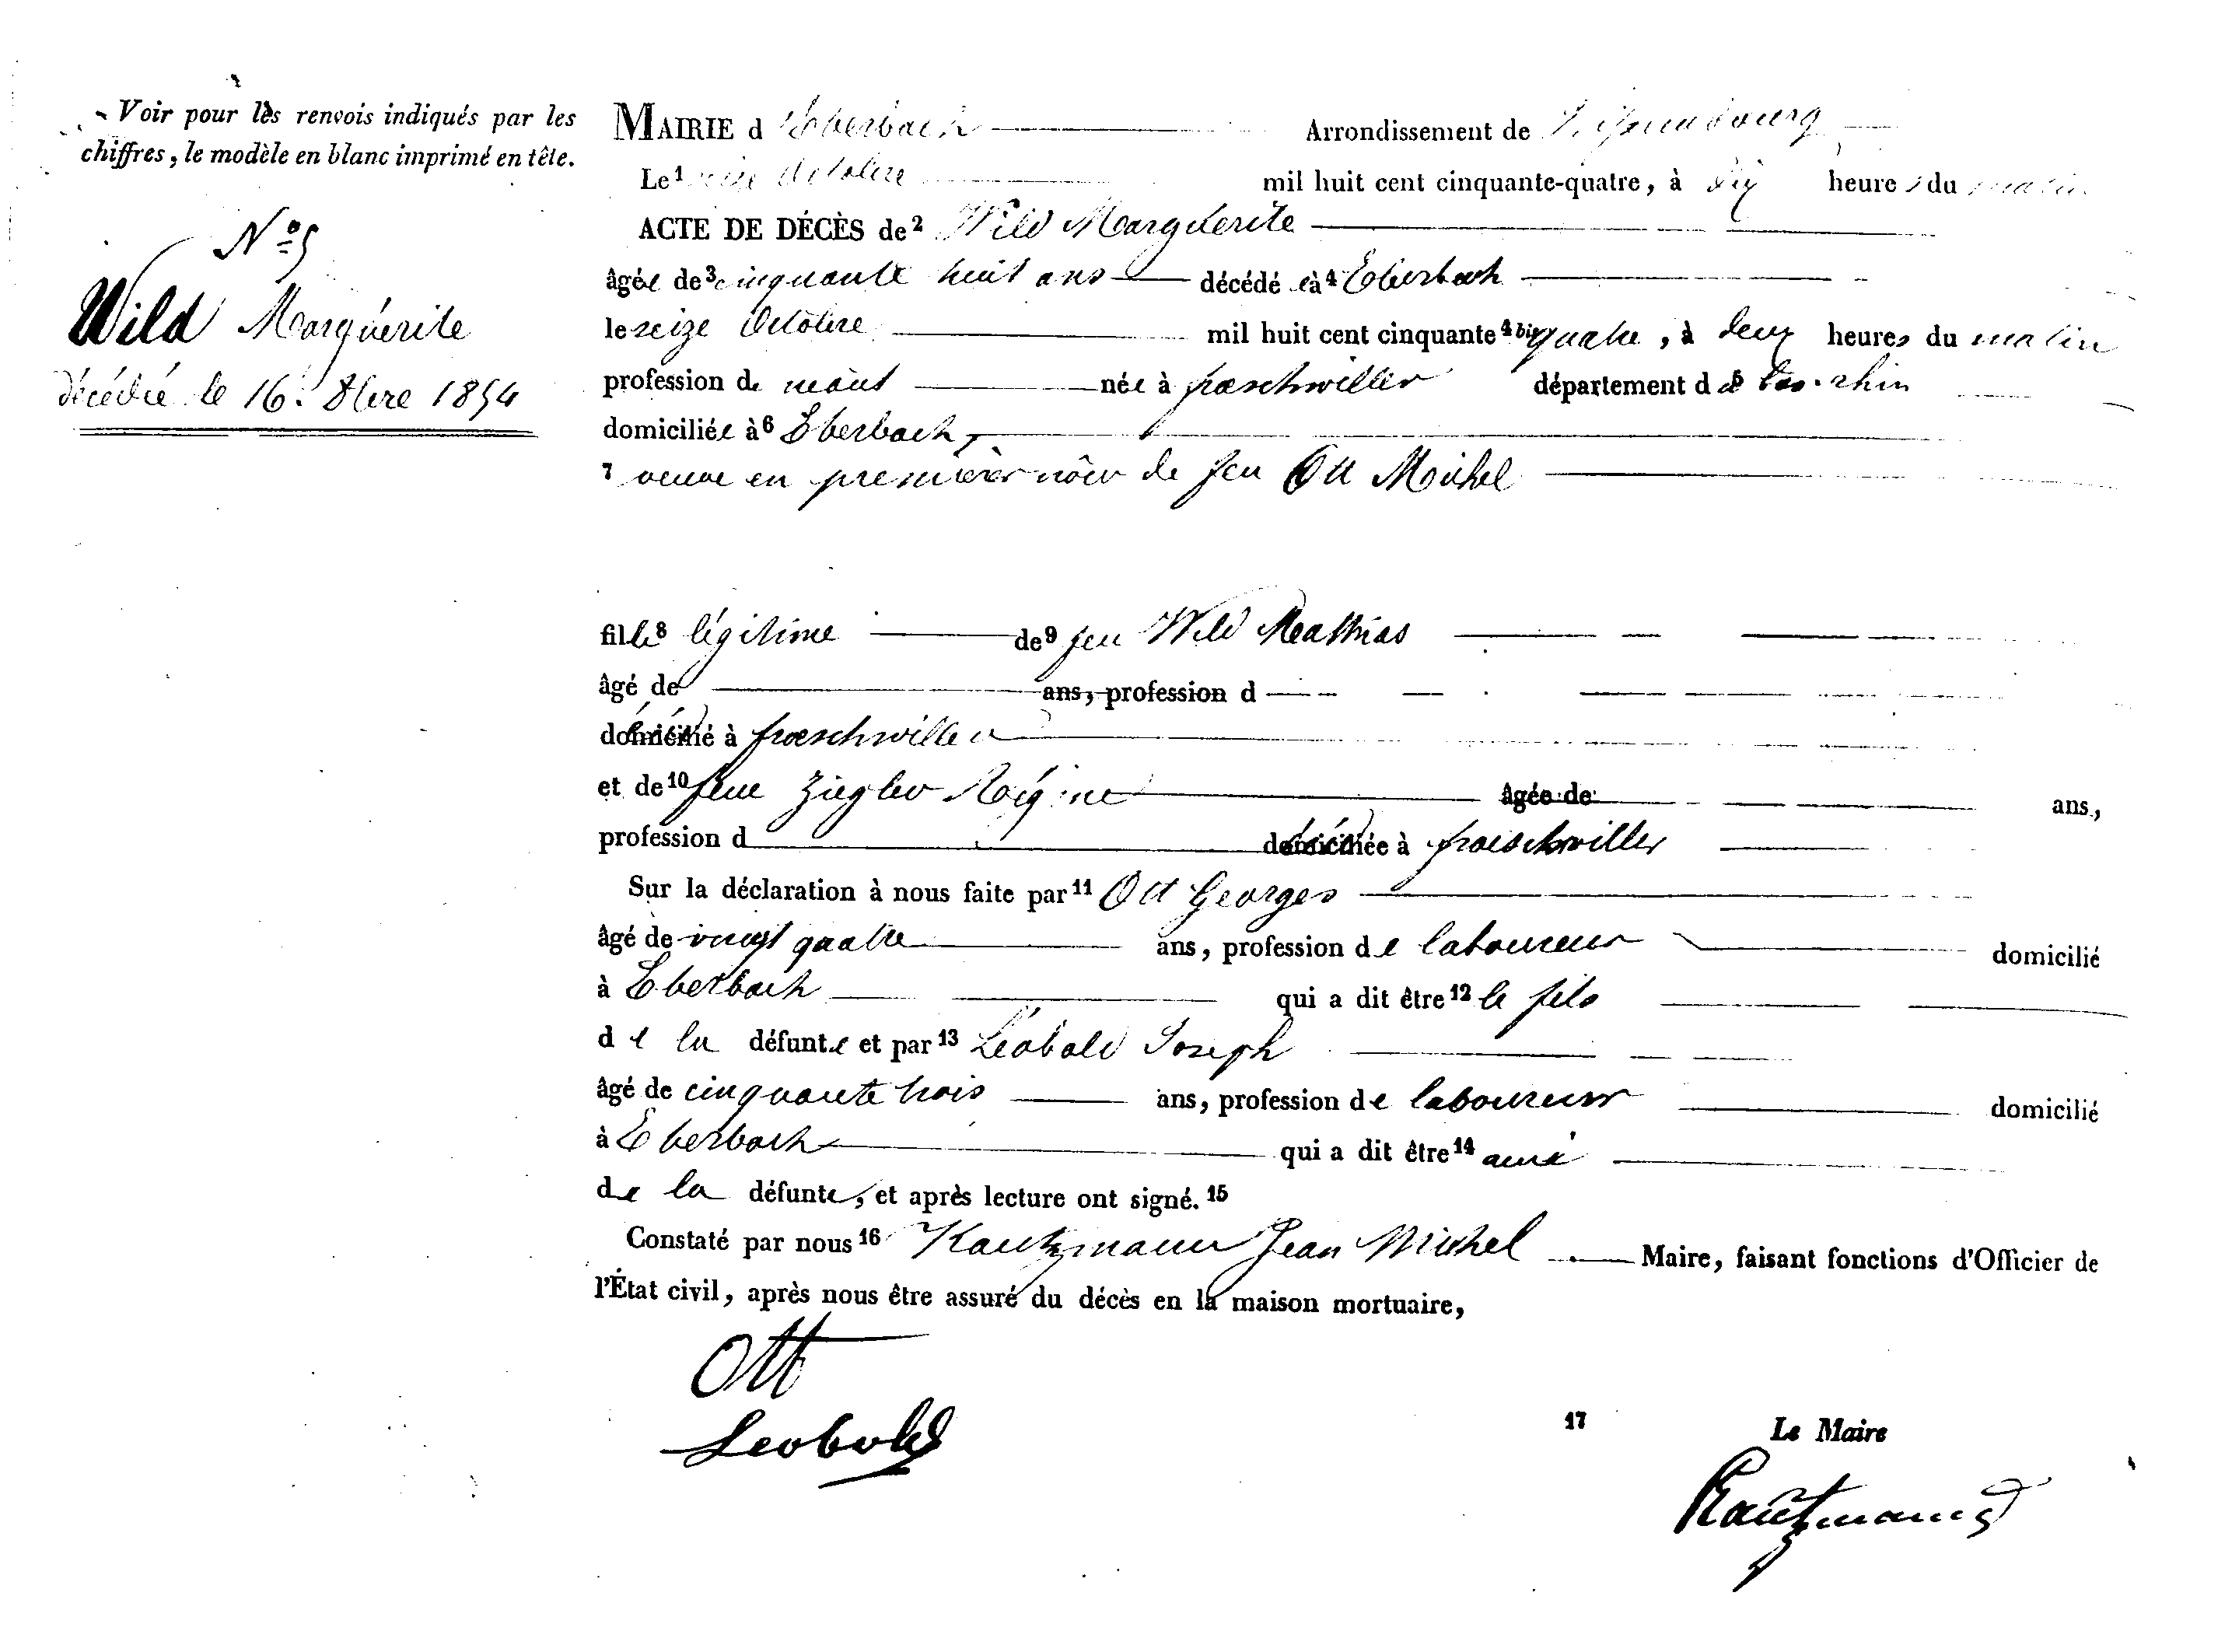 Voir pour les renvois indiqués par les
chiffres, le modèle en blanc imprimé en tête.
N° 5
Wild Marguérite
décédée le 16. 8bre 1854
MAIRIE d'Eberbach Arrondissement de
Le 1 seize Octobre mil huit cent cinquante-quatre, à dix heures du matin
ACTE DE DÉCÈS de 2 Wild Marguerite
âgée de 3 cinquante huit ans décédée à 4 Eberbach
le seize Octobre mil huit cent cinquante 4 bis quatre, à deux heures du matin
profession de née à froeschwiller département d 5 bas-rhin
domiciliée à 6 Eberbach,
7 veuve en premières nôces de feu Ott Michel
fille 8 légitime de 9 feu Wild Mathias
âgé de ans, profession d
décédé à froeschwiller
et de 10 feue Ziegler Régine âgée de ans,
profession d décédée à froeschwiller
Sur la déclaration à nous faite par 11 Ott Georges
âgé de vingt quatre ans, profession de laboureur domicilié
à Eberbach qui a dit être 12 le fils
de la défunte et par 13 Léobold Joseph
âgé de cinquante trois ans, profession de laboureur domicilié
à Eberbach qui a dit être 14 ami
de la défunte, et après lecture ont signé. 15
Constaté par nous 16 Kautzmann Jean Michel Maire, faisant fonctions d'Officier de
l'État civil, après nous être assuré du décès en la maison mortuaire,
Ott
Leobold
17 Le Maire
Kautzmann